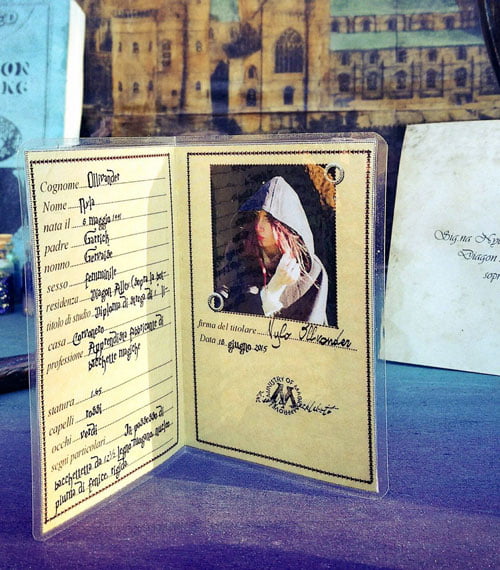 OOK
KG
Cognome Ollivander
Nome Nyla
nata il 6 maggio 1995
padre Garrick
nonno Gervaise
sesso femminile
residenza Diagon Alley (sopra la bot-
titolo di studio Diploma di
casa Corvonero
professione Apprendista fabbricante di
bacchette magiche
statura 1.65
capelli rossi
occhi verdi
segni particolari In possesso di
bacchetta da 12½ legno
piuma di fenice, rigida
firma del titolare Nyla Ollivander
Data 18 giugno 2015
MINISTRY OF MAGIC
M
Sig.na Ny
Diagon
sopr